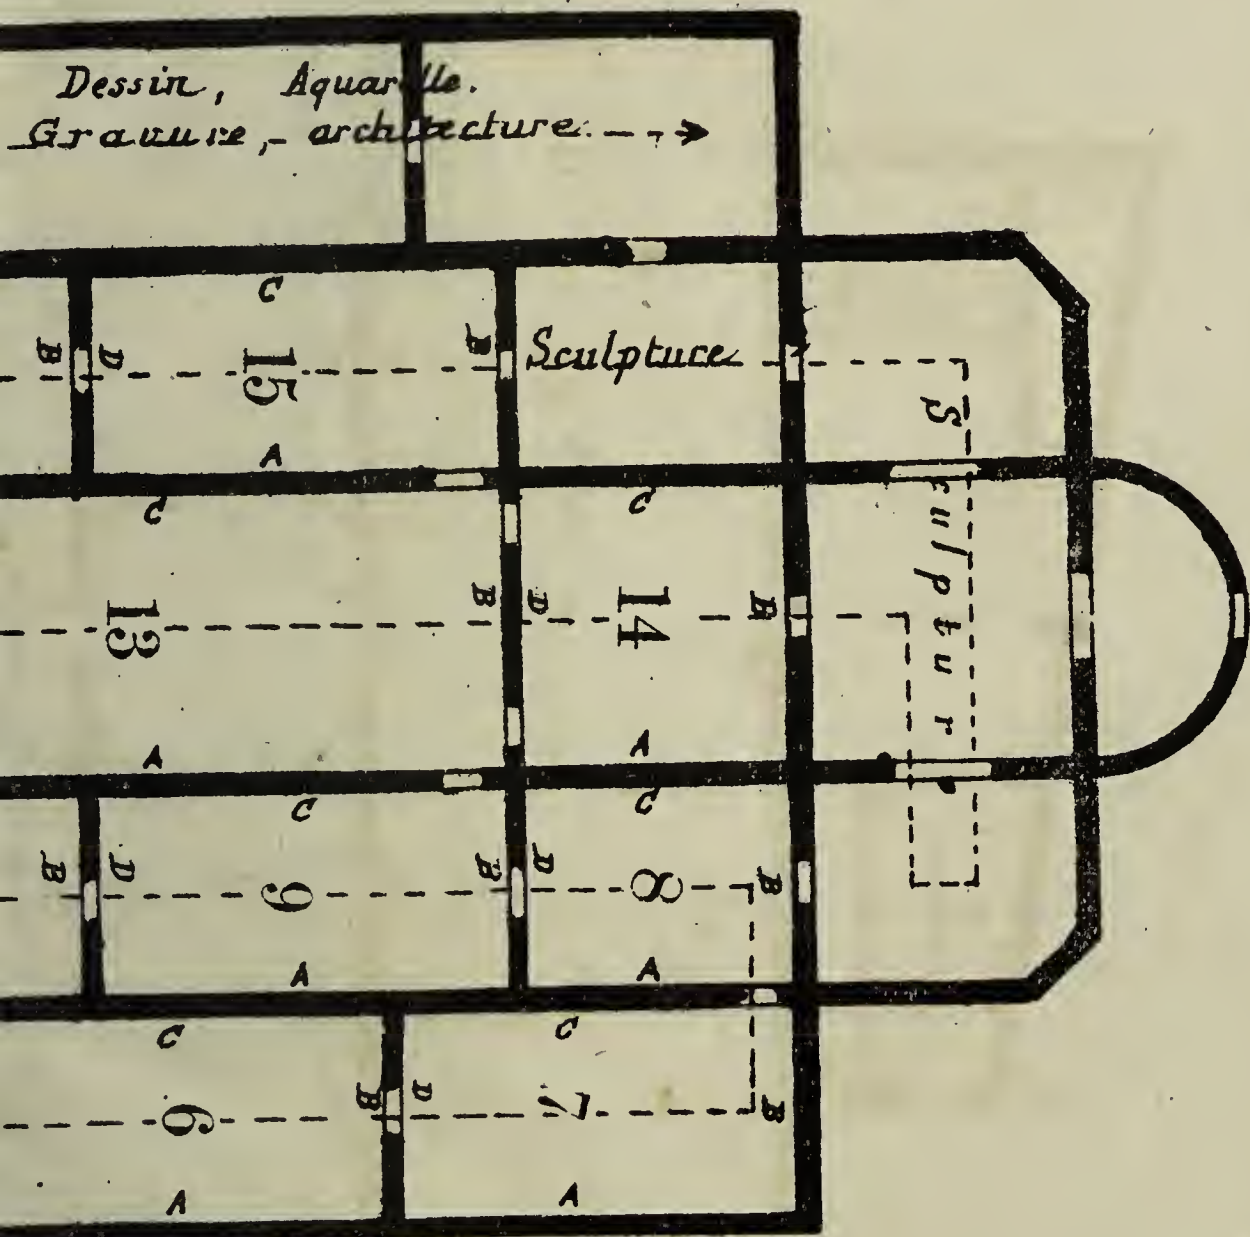 Dessin, Aquarelle.
Gravure, - architecture.
C
B D 15 B Sculpture
A
Sculptur
C C
13 B D 14 B
A A
C C
B D 9 B D 8 B
A A
C C
6 B D 7 B
A A